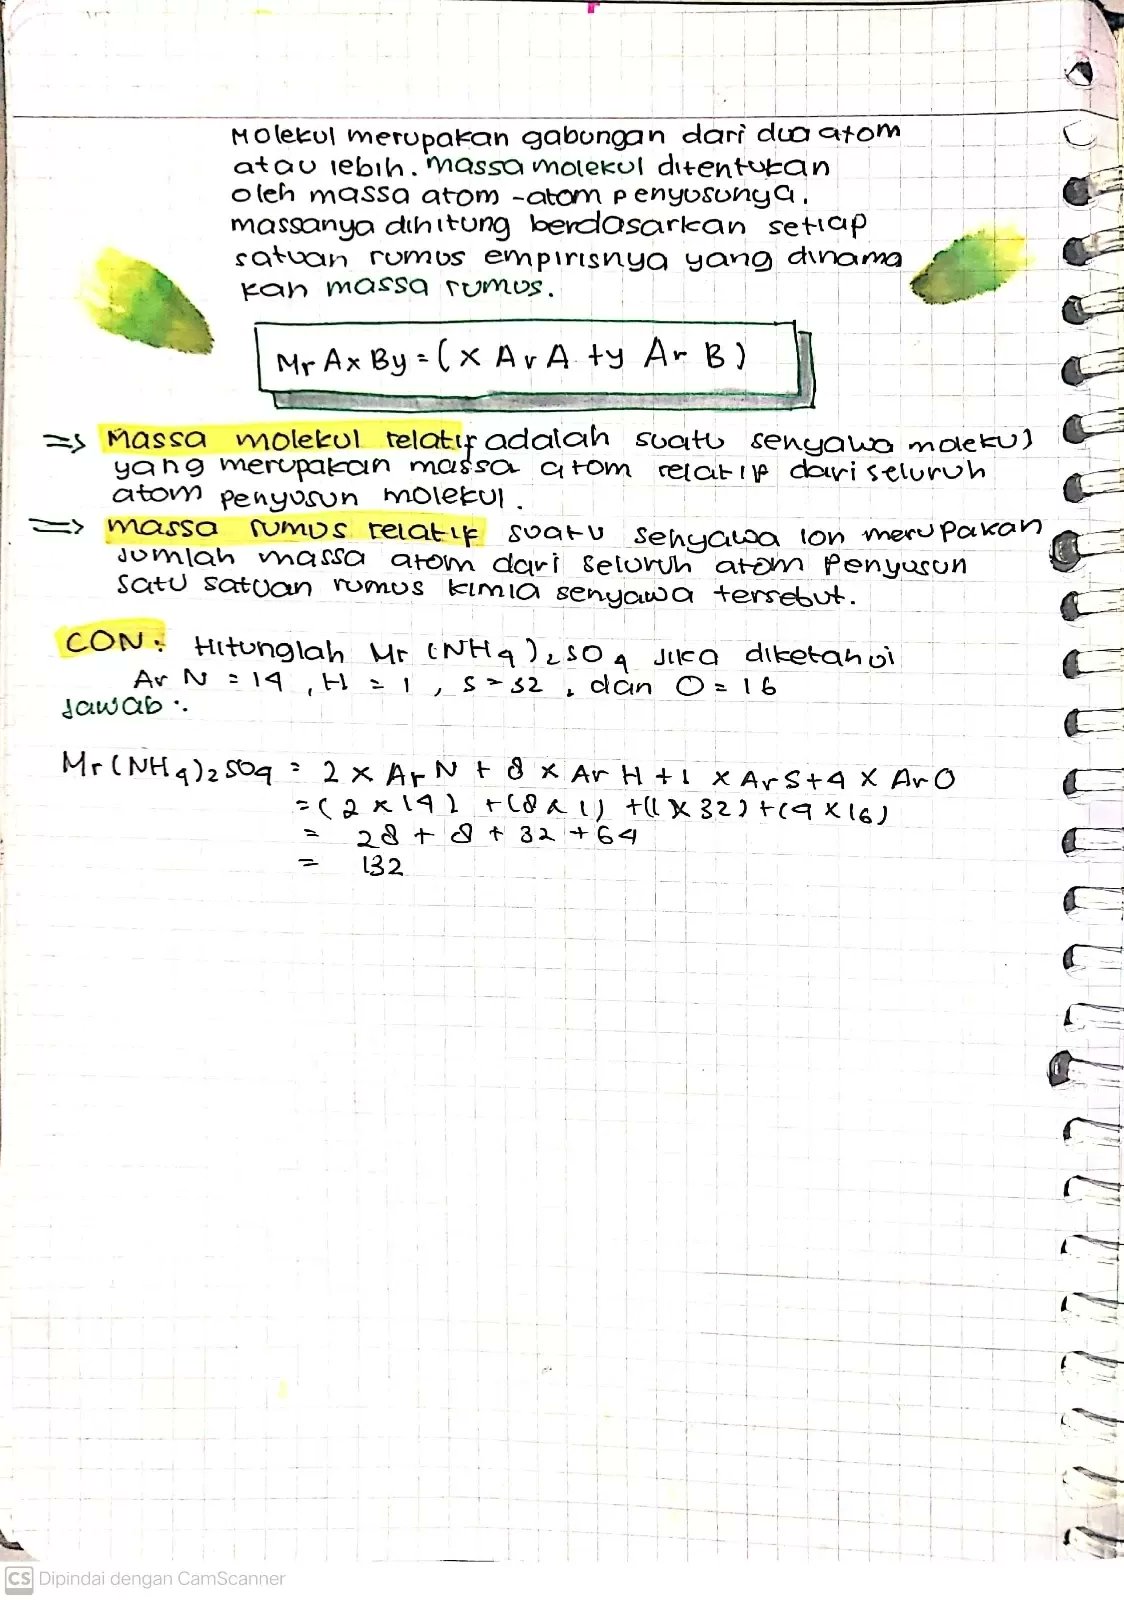 Molekul merupakan gabungan dari dua atom
atau lebih. Massa molekul ditentukan
oleh massa atom-atom penyusunya.
massanya dihitung berdasarkan setiap
satuan rumus empirisnya yang dinama
kan massa rumus.
Mr AxBy = (x Ar A + y Ar B)
=> Massa molekul relatif adalah suatu senyawa molekul
yang merupakan massa atom relatif dari seluruh
atom penyusun molekul.
=> massa rumus relatif suatu senyawa ion merupakan
Jumlah massa atom dari seluruh atom Penyusun
Satu satuan rumus kimia senyawa tersebut.
CON: Hitunglah Mr (NH4)2SO4 Jika diketahui
Ar N = 14, H = 1, S = 32, dan O = 16
Jawab:.
Mr (NH4)2SO4 = 2 x Ar N + 8 x Ar H + 1 x Ar S + 4 x Ar O
= (2 x 14) + (8 x 1) + (1 x 32) + (4 x 16)
= 28 + 8 + 32 + 64
= 132
CS Dipindai dengan CamScanner